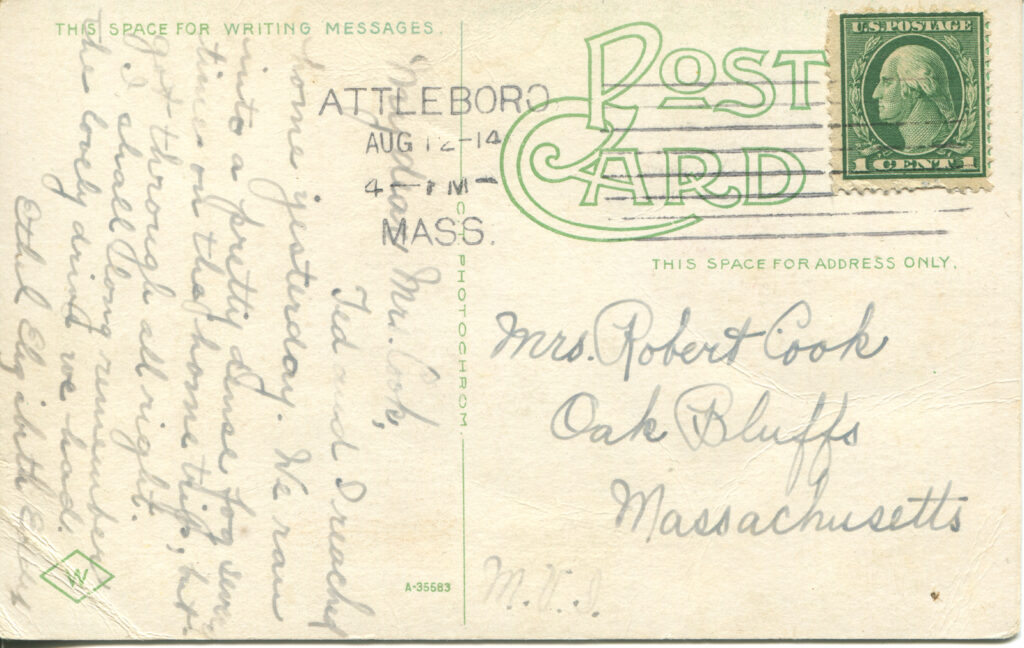 THIS SPACE FOR WRITING MESSAGES.
POST CARD
U.S. POSTAGE
1 CENT 1
ATTLEBORO
AUG 12-14
4 - M -
MASS.
THIS SPACE FOR ADDRESS ONLY.
My dear Mr. Cook,
Ted and I reached
home yesterday. We ran
into a pretty dense fog
times on that home trip, but
got through all right.
I shall long remember
the lovely drive we had.
Ethel Elizabeth
Mrs. Robert Cook
Oak Bluffs
Massachusetts
M.V.I.
PHOTOCHROM.
A-35583
W